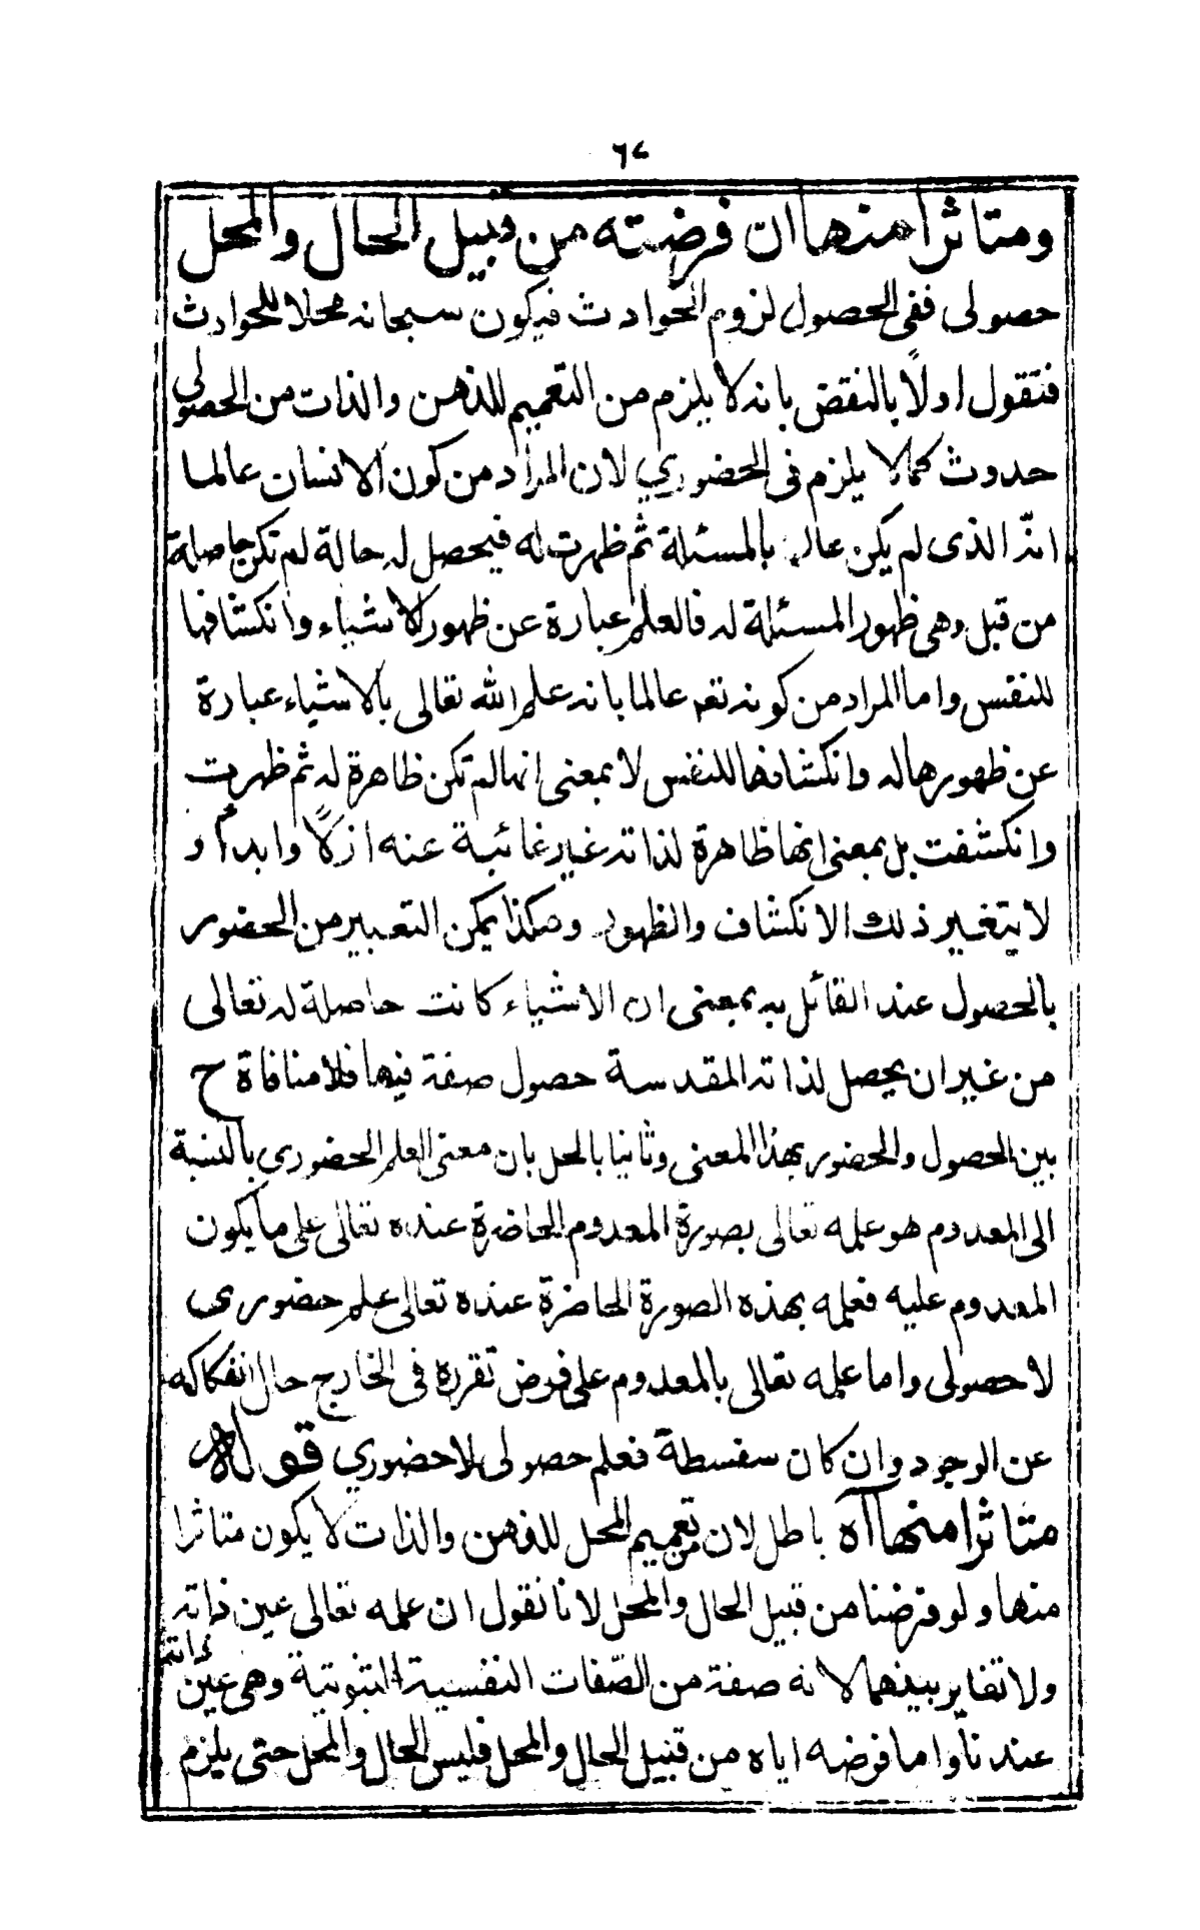 ٦٨
ومتاثرا منها ان فرضته من قبيل الحال والمحل
حصولى ففى الحصول لزوم الحوادث فيكون سبحانه محلا للحوادث
فتقول اولاً بالنقض بانه لا يلزم من التعميم للذهن والذات من الحصولى
حدوث كمالا يلزم فى الحضوري لان المراد من كون الانسان عالما
انّه الذى لم يكن عالما بالمسئلة ثم ظهرت له فيحصل له حالة لم تكن حاصلة
من قبل وهى ظهور المسئلة له فالعلم عبارة عن ظهور الاشياء وانكشافها
للنفس واما المراد من كونه تعم عالما بانه علم الله تعالى بالاشياء عبارة
عن ظهورها له وانكشافها للنفس لا بمعنى انها لم تكن ظاهرة له ثم ظهرت
وانكشفت بل بمعنى انها ظاهرة لذاته غير غائبة عنه ازلاً وابداً و
لا يتغير ذلك الانكشاف والظهور وهكذا يمكن التعبير من الحضور
بالحصول عند القائل به بمعنى ان الاشياء كانت حاصلة له تعالى
من غير ان يحصل لذاته المقدسة حصول صفة فيها فلا منافاة ح
بين الحصول والحضور بهذا المعنى وثانيا بالحل بان معنى العلم الحضوري بالنسبة
الى المعدوم هو علمه تعالى بصورة المعدوم الحاضرة عنده تعالى على ما يكون
المعدوم عليه فعلمه بهذه الصورة الحاضرة عنده تعالى علم حضورى
لا حصولى واما علمه تعالى بالمعدوم على فرض تقرره فى الخارج حال انفكاكه
عن الوجود وان كان سفسطة فعلم حصولى لا حضوري قوله
متاثرا منها آه باطل لان تعميم المحل للذهن والذات لا يكون متاثرا
منها ولو فرضنا من قبيل الحال والمحل لانا نقول ان علمه تعالى عين ذاته
ولا تغاير بينهما لانه صفة من الصّفات النفسية الثبوتية وهى عين ذاته
عندنا واما فرضه اياه من قبيل الحال والمحل فليس الحال والمحل حتى يلزم